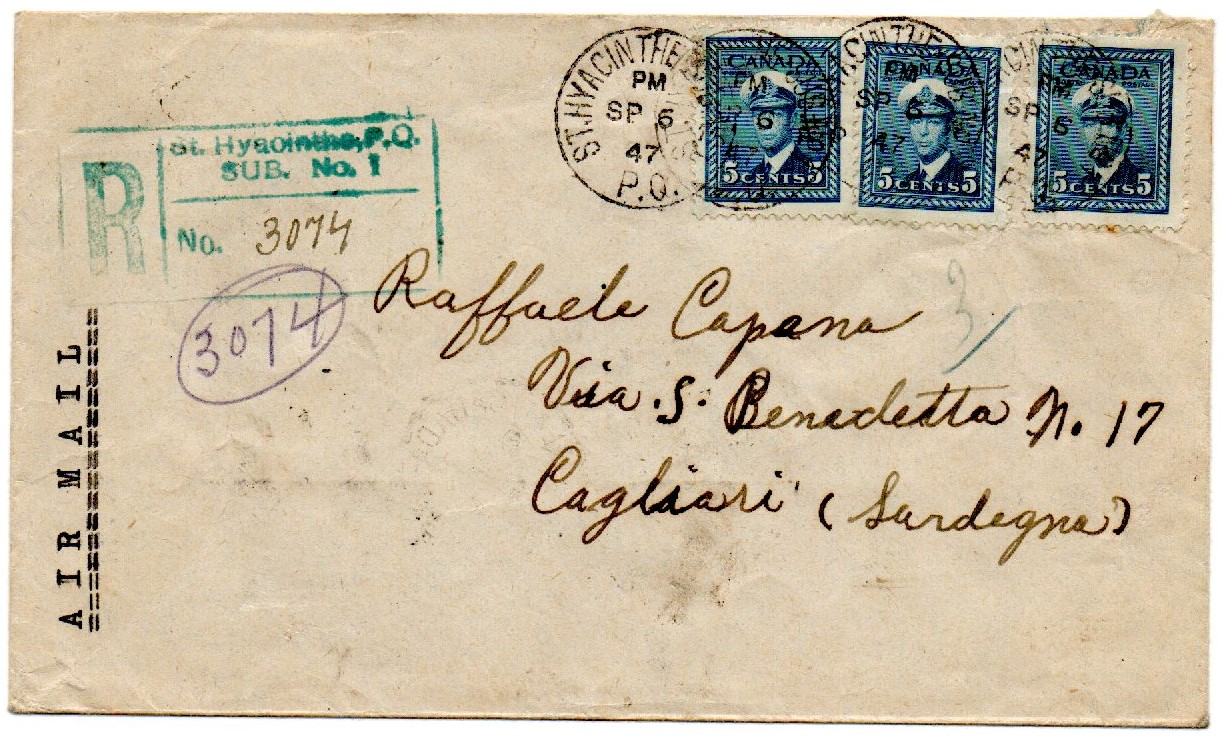 ST. HYACINTHE
PM
SP 6
47
P.Q.
CANADA
5 CENTS 5
PM
SP 6
47
CANADA
5 CENTS 5
PM
SP 6
47
CANADA
5 CENTS 5
R
St. Hyacinthe, P.Q.
SUB. No. 1
No. 3074
3074
AIR MAIL
Raffaele Capana
Via S. Benedetta N. 17
Cagliari (Sardegna)
3/